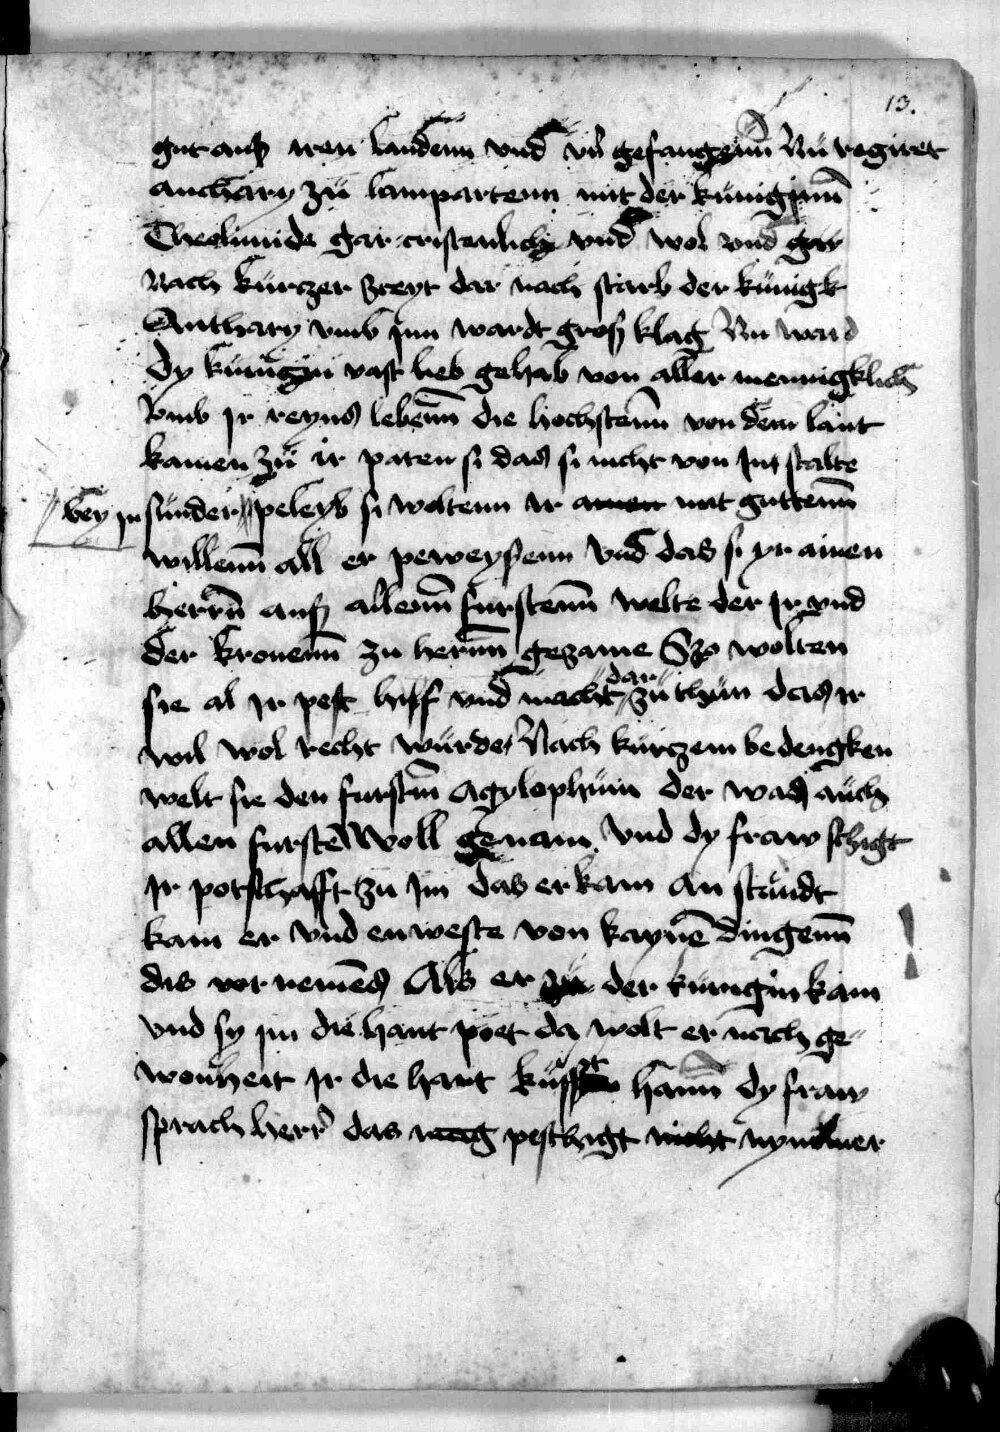 13.
gut auß iren landenn vnd vil gefangenn Nu regiret
anthary zu lamparten mit der kuniginn
Theolinnde gar cristenlich vnd wol vnd gar
nach kurczer zeyt dar nach starb der kunigk
Anthary vmb inn wardt groß klag Nu ward
dy kunigin vast lieb gehab von aller mennigklich
vmb ir reyns lebenn die hochstenn von dem lant
kamen zu ir paten si das si nicht von Jnn stalte
bey in sunder peleyb si woltenn ir amen mit guttenn
willenn all er peweysenn vnd das si yr ainen
herrn auß allenn furstenn welte der Ir vnd
der kronenn zu herrnn gezame Szo wolten
sie al Ir pest hilff vnd macht dar zu thun das ir
wil wol recht wurde Nach kurczem bedengken
welt sie den furstn Agylophum der was auch
allen fursten woll genam vnd dy fraw schigt
Ir potschafft zu Im das er kam an standt
kam er vnd enweste von kaynen dingenn
dis vornemens Als er zu der kunigin kam
vnd sy im die hant poet da wolt er nach ge-
wonheit Ir die hant kusst hann dy fraw
sprach herr das peschigt nicht nymmer